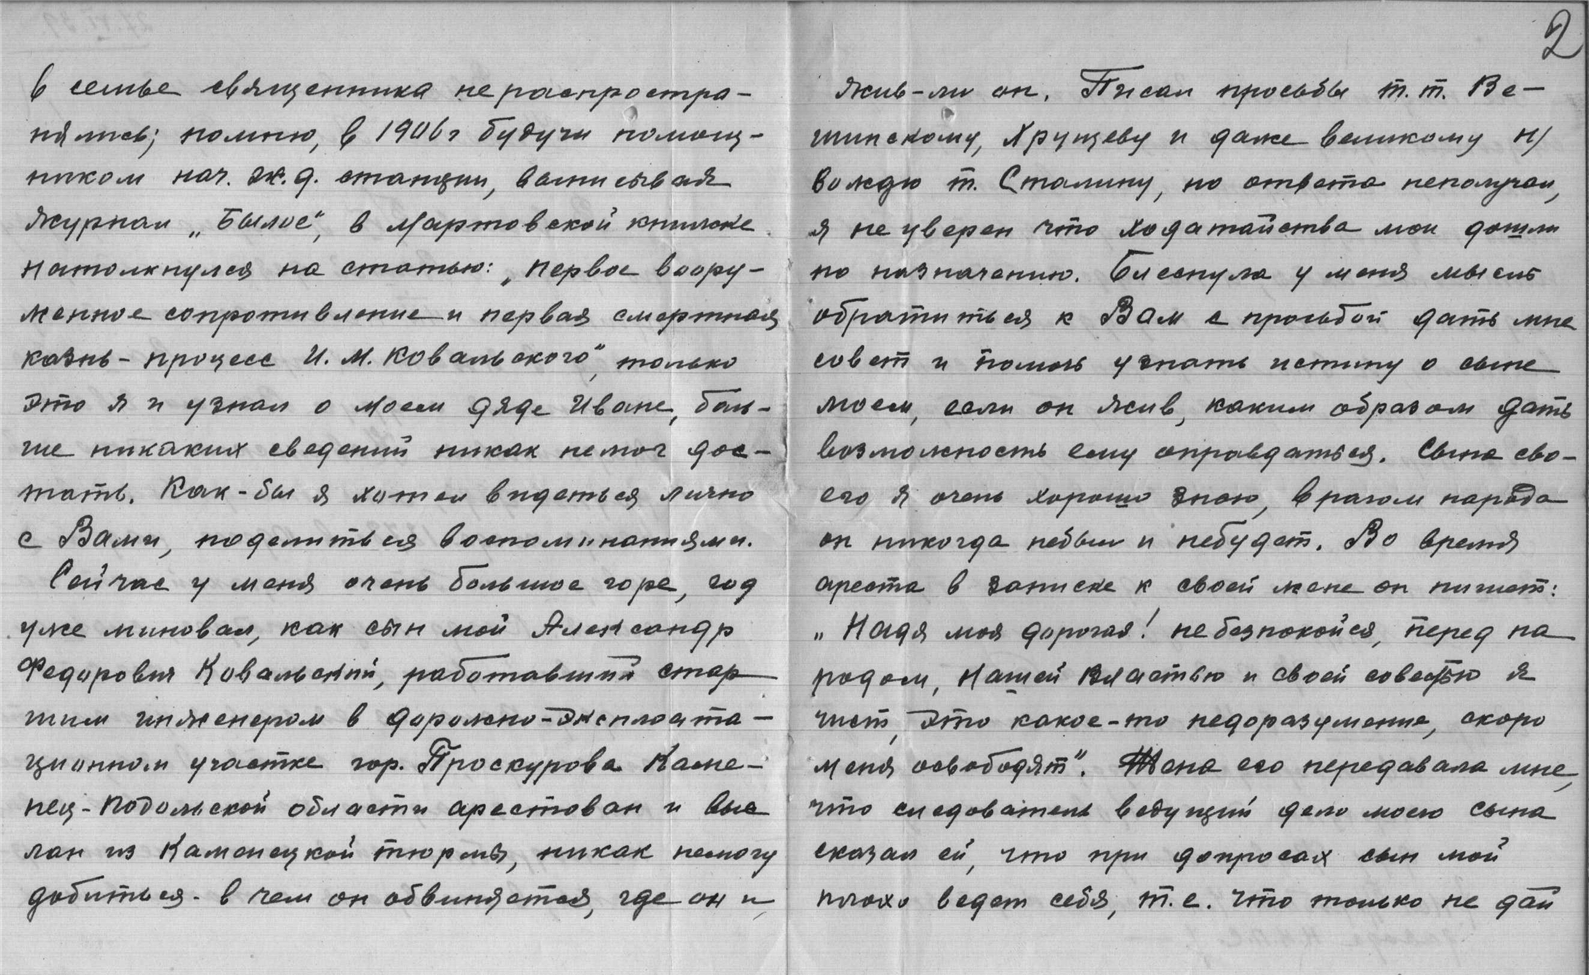 в семье священника нераспростра-
нялись; помню, в 1906 г будучи помощ-
ником нач. ж.д. станции, выписывая
журнал „Былое", в Мартовской книжке
натолкнулся на статью: „первое воору-
женное сопротивление и первая смертная
казнь - процесс И. М. Ковальского", только
это я и узнал о моем дяде Иване, боль-
ше никаких сведений никак немог дос-
тать. Как-бы я хотел видеться лично
с Вами, поделиться воспоминаниями.
Сейчас у меня очень большое горе, год
уже миновал, как сын мой Александр
Федорович Ковальский, работавший стар
шим инженером в дорожно-эксплоата-
ционном участке гор. Проскурова Каме-
нец-Подольской области арестован и выс
лан из Каменецкой тюрьмы, никак немогу
добиться - в чем он обвиняется, где он и
2
жив-ли он. Писал просьбы т.т. Вы-
шинскому, Хрущеву и даже великому н/
вождю т. Сталину, но ответа неполучал,
я не уверен что ходатайства мои дошли
по назначению. Блеснула у меня мысль
обратиться к Вам с просьбой дать мне
совет и помочь узнать истину о сыне
моем, если он жив, каким образом дать
возможность ему оправдаться. Сына сво-
его я очень хорошо знаю, врагом народа
он никогда небыл и небудет. Во время
ареста в записке к своей жене он пишет:
„Надя моя дорогая! небезпокойся, перед на
родом, нашей властью и своей совестью я
чист, это какое-то недоразумение, скоро
меня освободят". Жена его передавала мне,
что следователь ведущий дело моего сына
сказал ей, что при допросах сын мой
плохо ведет себя, т.е. что только не дай